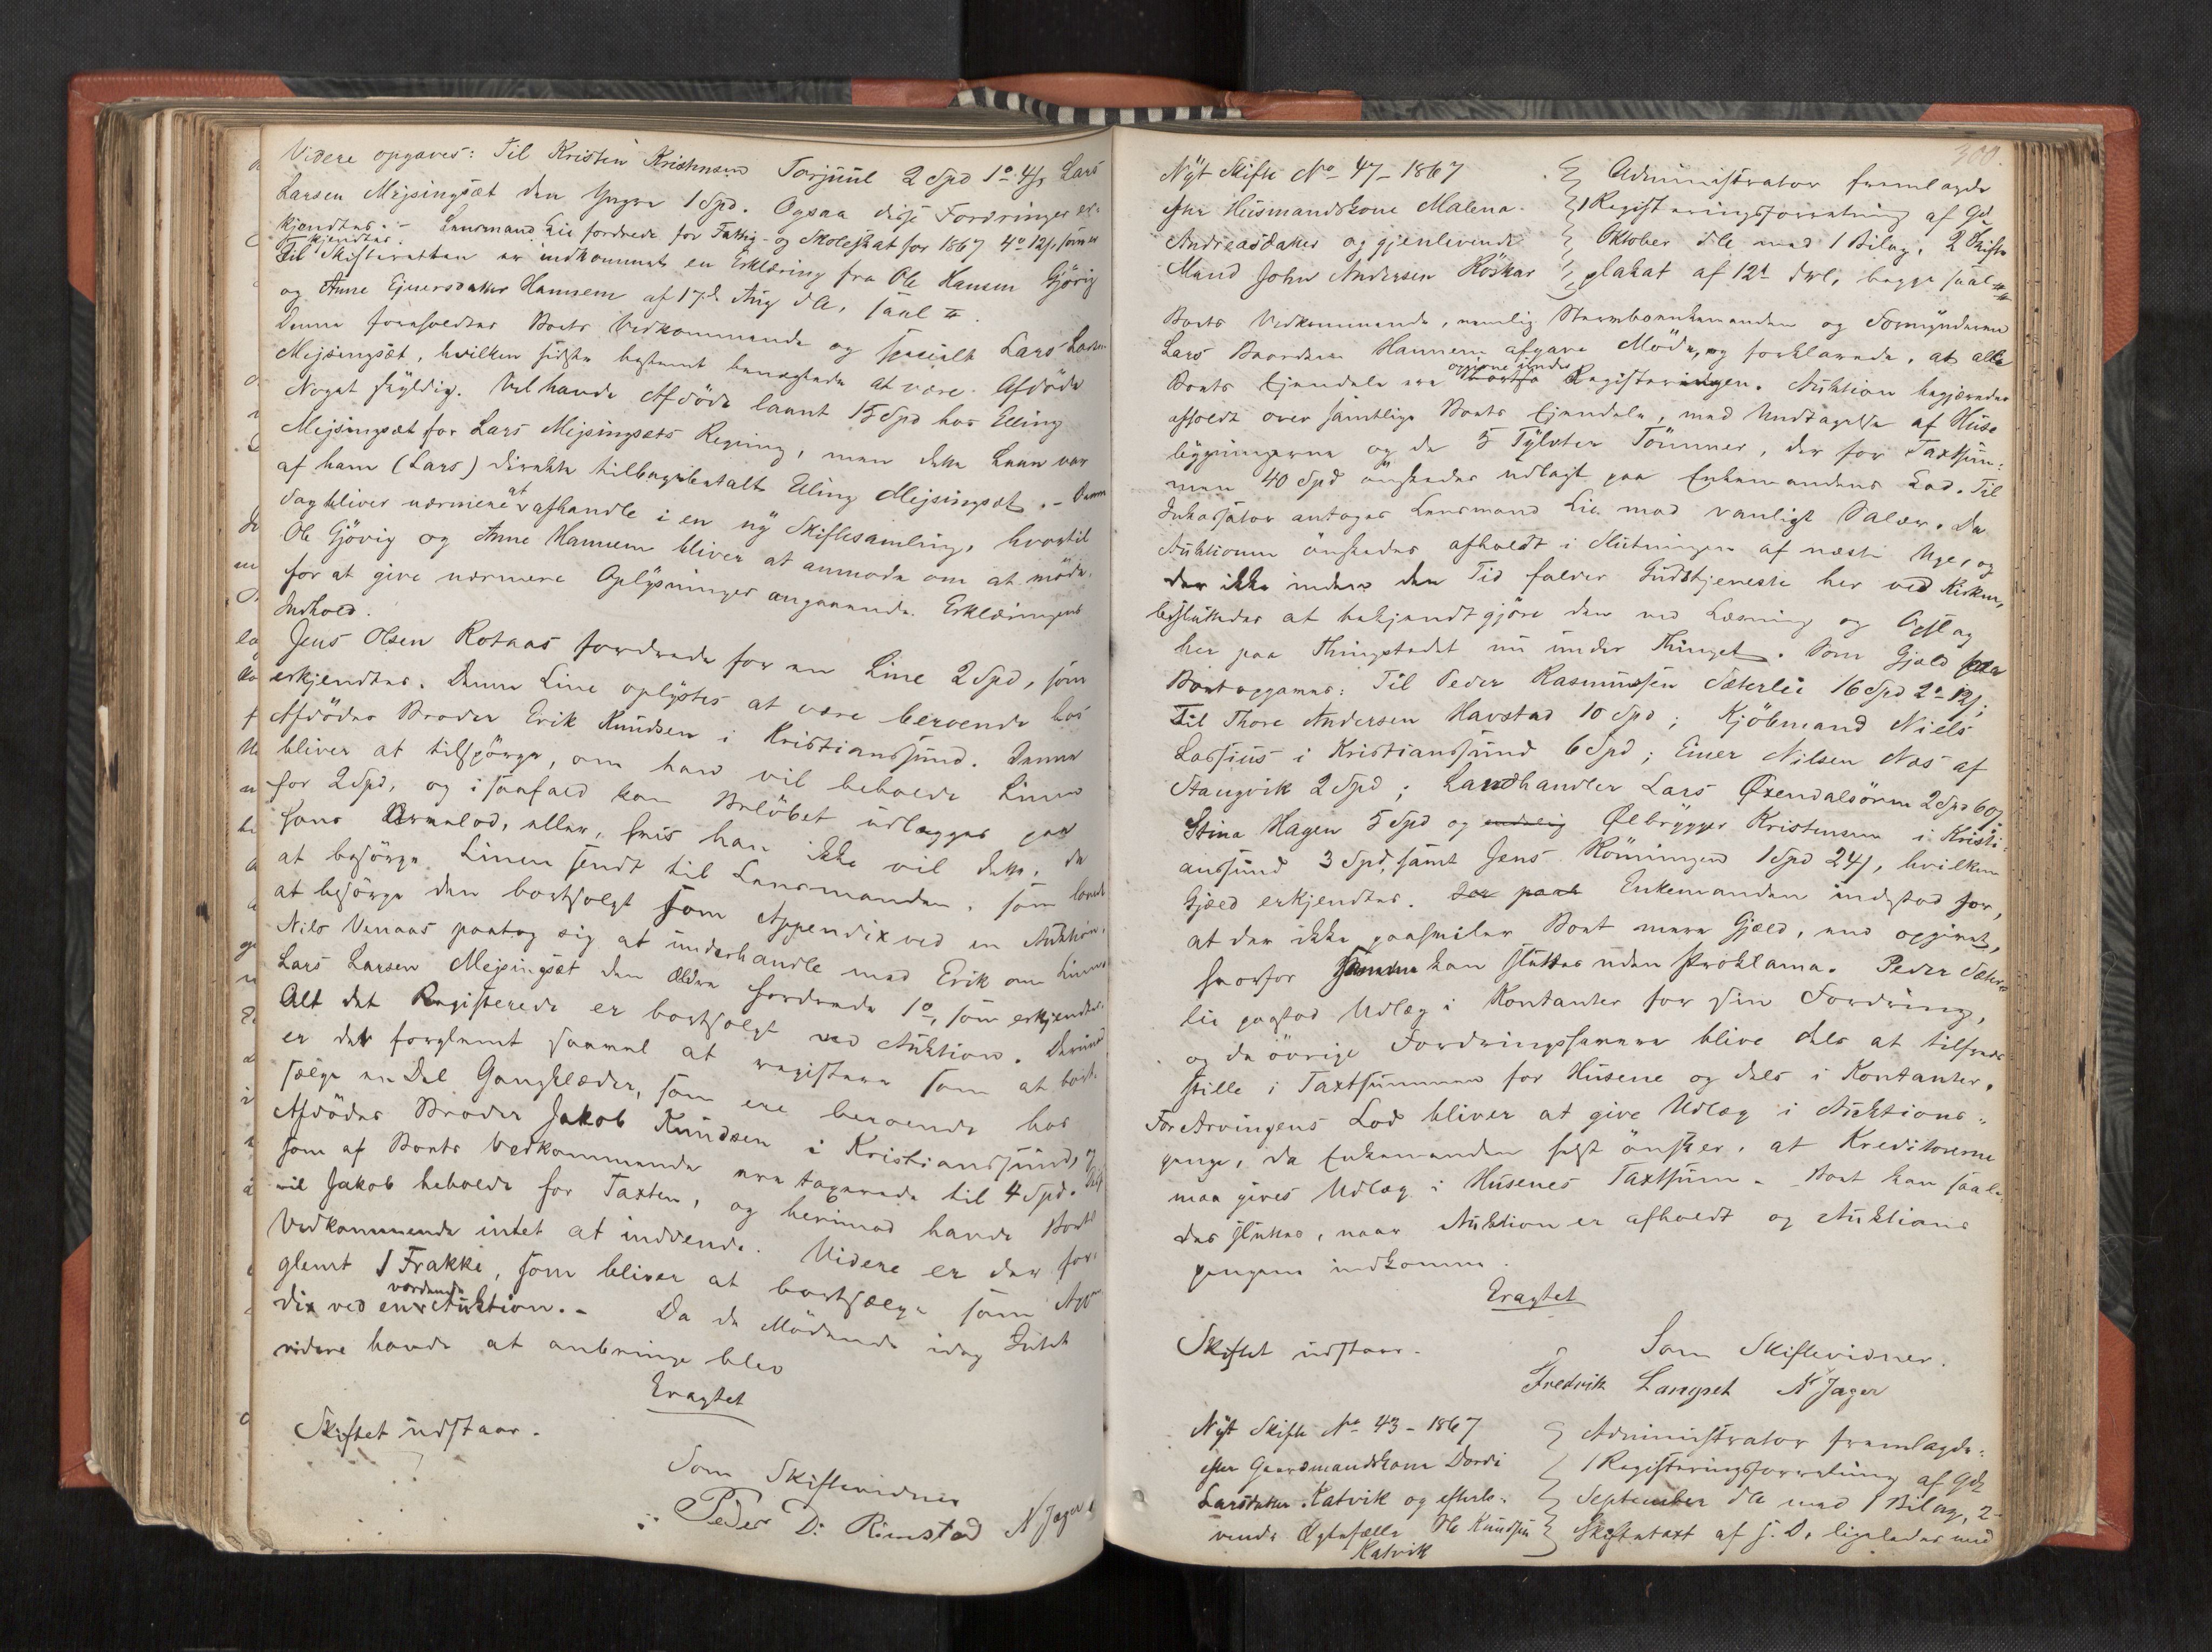 Videre opgaves: Til Kristen Kristensen Torjuul 2 Spd 1 o. 4 s, Lars
Larsen Mejsingsæt den Yngre 1 Spd. Ogsaa disse Fordringer er-
kjendtes. - Lensmand Lie fordrede for Fattig- og Skoleskat for 1867 4 o 12 s, som er-
kjendtes.
Til Skifteretten er indkommet en Erklæring fra Ole Hansen Gjövig
og Anne Ejnersdatter Hannem af 17de Aug dA, saal #.
Denne foreholdtes Boets Vedkommende og specielt Lars Larsen
Mejsingsæt, hvilken sidste bestemt benegtede at være Afdöde
Noget skyldig. Vel havde Afdöde laant 15 Spd hos Elling
Mejsingsæt for Lars Mejsingsæts Regning, men dette Laan var
af ham (Lars) direkte tilbagebetalt Elling Mejsingsæt. - Denne
Sag bliver nærmere at afhandle i en ny Skiftesamling, hvortil
Ole Gjövig og Anne Hannem bliver at anmode om at möde
for at give nærmere Oplysninger angaaende Erklæringens
Indhold.
Jens Olsen Rotaas fordrede for en Line 2 Spd, som
erkjendtes. Denne Line oplystes at være beroende hos
Afdödes Broder Erik Knudsen i Kristianssund. Denne
bliver at tilspörge, om han vil beholde Linen
for 2 Spd, og i saafald kan Belöbet udlægges paa
hans Arvelod, eller, hvis han ikke vil dette, da
at besörge Linen sendt til Lensmanden, som lovede
at besörge den bortsolgt som Appendix ved en Auktion.
Nils Vennaas paatog sig at underhandle med Erik om Linen
Lars Larsen Mejsingsæt den Ældre fordrede 1 o, som erkjendtes.
Alt det Registerede er bortsolgt ved Auktion. Derimod
er det forglemt saavel at registere som at bort-
sælge en Del Gangklæder, som ere beroende hos
Afdödes Broder Jakob Knudsen i Kristianssund, og
som af Boets Vedkommende ere taxerede til 4 Spd.
vil Jakob beholde for Taxten, og herimod havde Boets
Vedkommende intet at indvende. Videre er der for-
glemt 1 Frakke, som bliver at bortsælge som Appen
dix ved en vordende Auktion. - Da de Mödende idag Intet
videre havde at anbringe blev
Eragtet
Skiftet udstaar.
Som Skiftevidner
Peder D: Rimstad N Jager
300.
Nyt Skifte No 47 - 1867
efter Huusmandskone Malena
Andreasdatter og gjenlevende
Mand John Andersen Röskar
Administrator fremlagde
1 Registeringsforretning af 9de
Oktober dA med 1 Bilag, 2 Skifte
plakat af 12te dsl, begge saal #
Boets Vedkommende, nemlig Stervboenkemanden og Formynderen
Lars Baardsen Hannem afgave Möde, og forklarede, at alle
Boets Ejendele ere opgivne under Registeringen. Auktion begjæredes
afholdt over samtlige Boets Ejendele, med Undtagelse af Huse
bygningerne og de 5 Tylvter Tömmer, der for Taxtsum-
men 40 Spd önskedes udlagt paa Enkemandens Lod. Til
Inkassator antoges Lensmand Lie mod vanligt Salær. Da
Auktionen önskedes afholdt i Slutningen af næste Uge, og
der ikke inden den Tid falder Gudstjeneste her ved Kirken,
besluttedes at bekjendtgjöre den ved Læsning og Opslag
her paa Thingstedet nu under Thinget. Som Gjæld paa
Boet opgaves: Til Peder Rasmussen Sæterlie 16 Spd 2 o 12 s;
Til Thore Andersen Havstad 10 Spd; Kjöbmand Niels
Lossius i Kristianssund 6 Spd; Einer Nilsen Næs af
Stangvik 2 Spd; Landhandler Lars Øxendalsören 2 Spd 60 s,
Stina Hagen 5 Spd og endelig Ølbrygger Kristensen i Kristi-
anssund 3 Spd, samt Jens Römningen 1 Spd 24 s, hvilken
Gjæld erkjendtes. Der paa Enkemanden indestod for,
at der ikke paahviler Boet mere Gjæld, end opgivet,
hvorfor kan sluttes uden Proklama. Peder Sæter-
lie paastod Udlæg i Kontanter for sin Fordring,
og de övrige Fordringshavere blive dels at tilfreds
stille i Taxtsummen for Husene og dels i Kontanter.
For Arvingens Lod bliver at give Udlæg i Auktions-
penge, da Enkemanden helst önsker, at Kreditorerne
maa gives Udlæg i Husenes Taxtsum. Boet kan saale-
des sluttes, naar Auktion er afholdt og Auktions
pengene indkomne.
Eragtet
Skiftet udstaar.
Som Skiftevidner.
Fredrik Langset N Jager
Nyt Skifte No 43 - 1867
efter Gaardmandskone Dordi
Larsdatter Katvik og efterle-
vende Ægtefælle Ole Knudsen
Katvik
Administrator fremlagde:
1 Registeringsforretning af 9de
September dA med 1 Bilag, 2
Skiftetaxt af s. D. ligeledes med